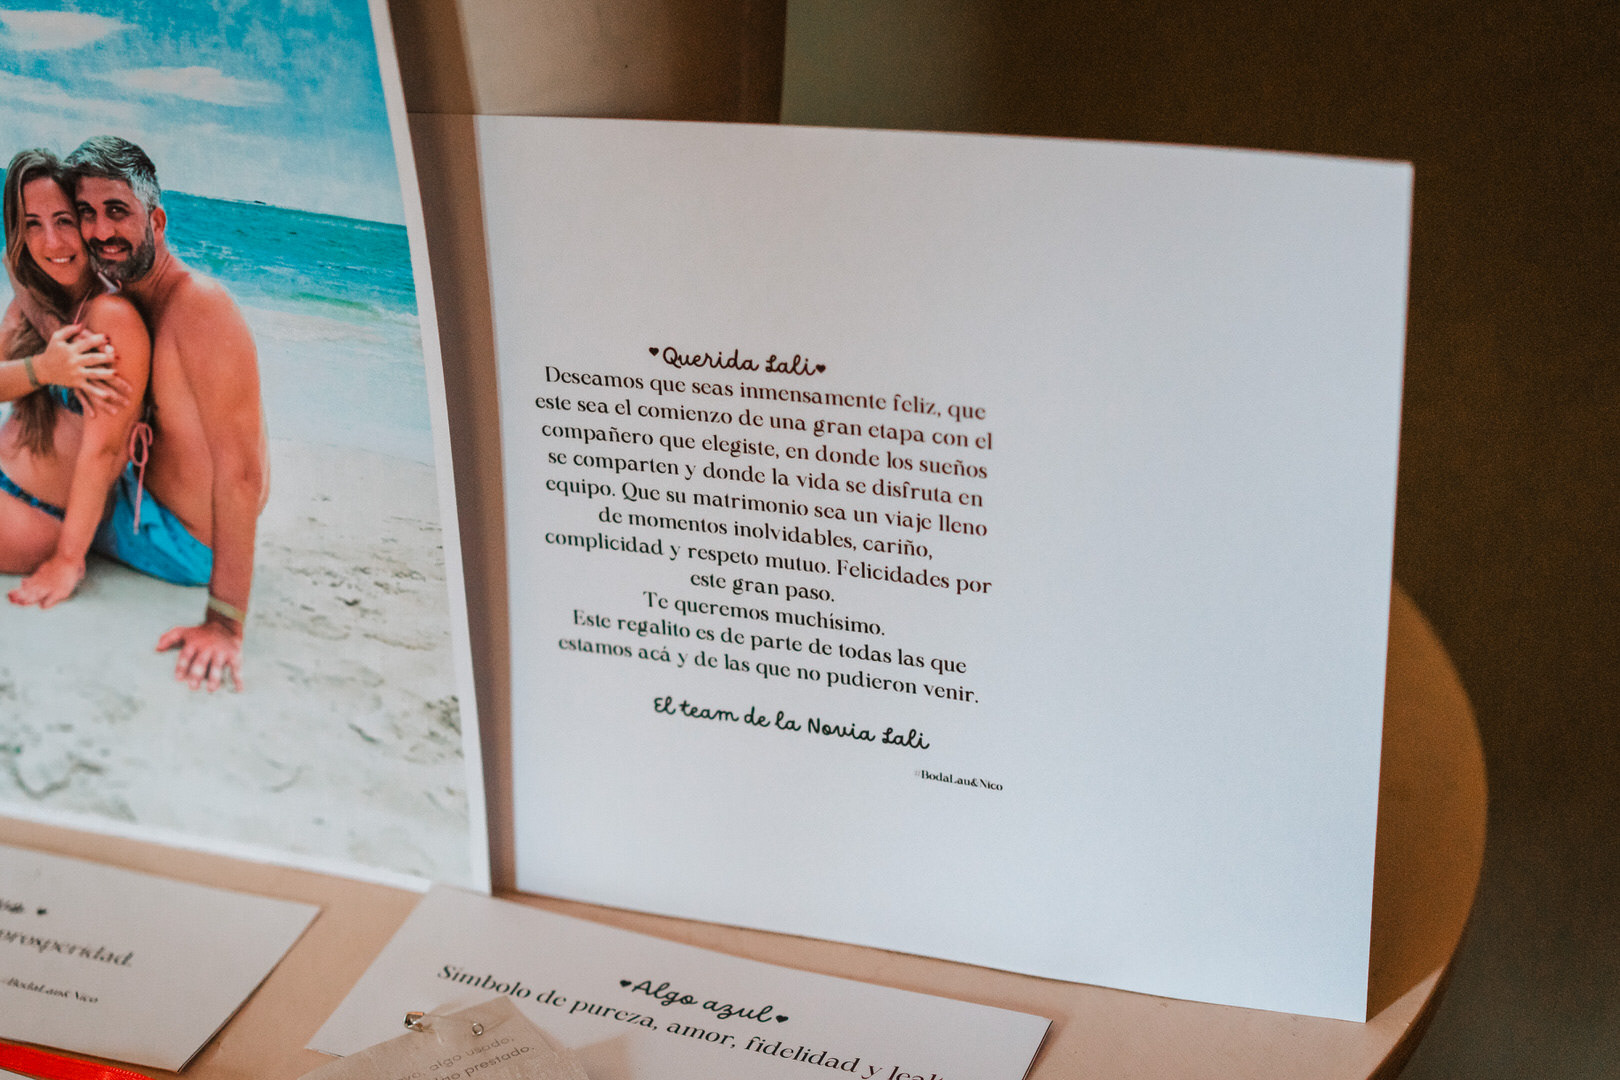 ♥Querida Lali♥
Deseamos que seas inmensamente feliz, que
este sea el comienzo de una gran etapa con el
compañero que elegiste, en donde los sueños
se comparten y donde la vida se disfruta en
equipo. Que su matrimonio sea un viaje lleno
de momentos inolvidables, cariño,
complicidad y respeto mutuo. Felicidades por
este gran paso.
Te queremos muchísimo.
Este regalito es de parte de todas las que
estamos acá y de las que no pudieron venir.
El team de la Novia Lali
#BodaLau&Nico
♥
prosperidad.
#BodaLau&Nico
♥Algo azul♥
Símbolo de pureza, amor, fidelidad y
algo usado,
prestado.